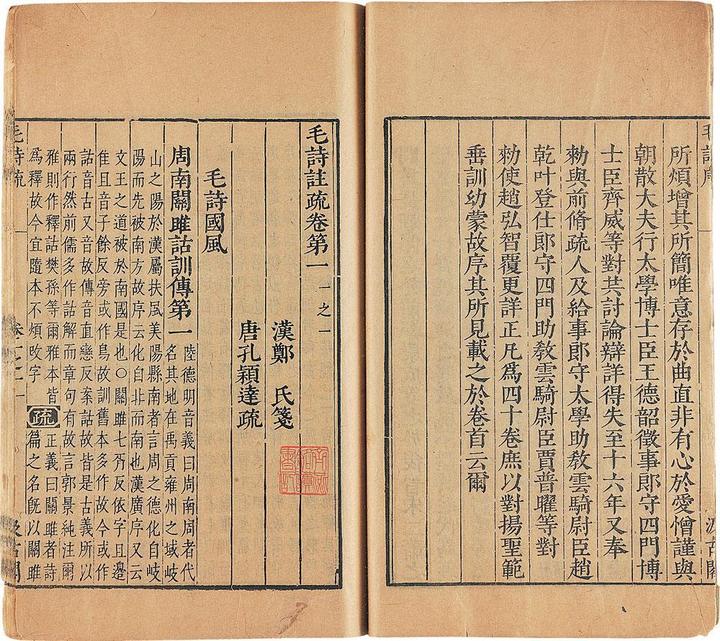 所煩增其所簡唯意存於曲直非有心於愛憎謹與
朝散大夫行太學博士臣王德韶徵事郎守四門博
士臣齊威等對共討論辯詳得失至十六年又奉
勑與前脩疏人及給事郎守太學助敎雲騎尉臣趙
乾叶登仕郎守四門助敎雲騎尉臣賈普曜等對
勑使趙弘智覆更詳正凡為四十卷庶以對揚聖範
垂訓幼蒙故序其所見載之於卷首云爾
毛詩註疏卷第一 一之一
漢鄭 氏箋
唐孔穎達疏
毛詩國風
周南關雎詁訓傳第一
陸德明音義曰周南周者代
名其地在禹貢雍州之域岐
山之陽於漢屬扶風美陽縣南者言周之德化自岐
陽而先被南方故序云化自北而南也漢廣序又云
文王之道被於南國是也○關雎七胥反依字且邊
隹且音子餘反旁或作鳥故訓舊本多作故今或作
詁音古又音故傳音直戀反案詁故皆是古義所以
兩行然前儒多作詁解而章句有故言郭景純注爾
雅則作釋詁樊孫等爾雅本皆
為釋故今宜隨本不煩改字
疏
正義曰關雎者詩
篇之名旣以關雎
毛詩疏
汲古閣